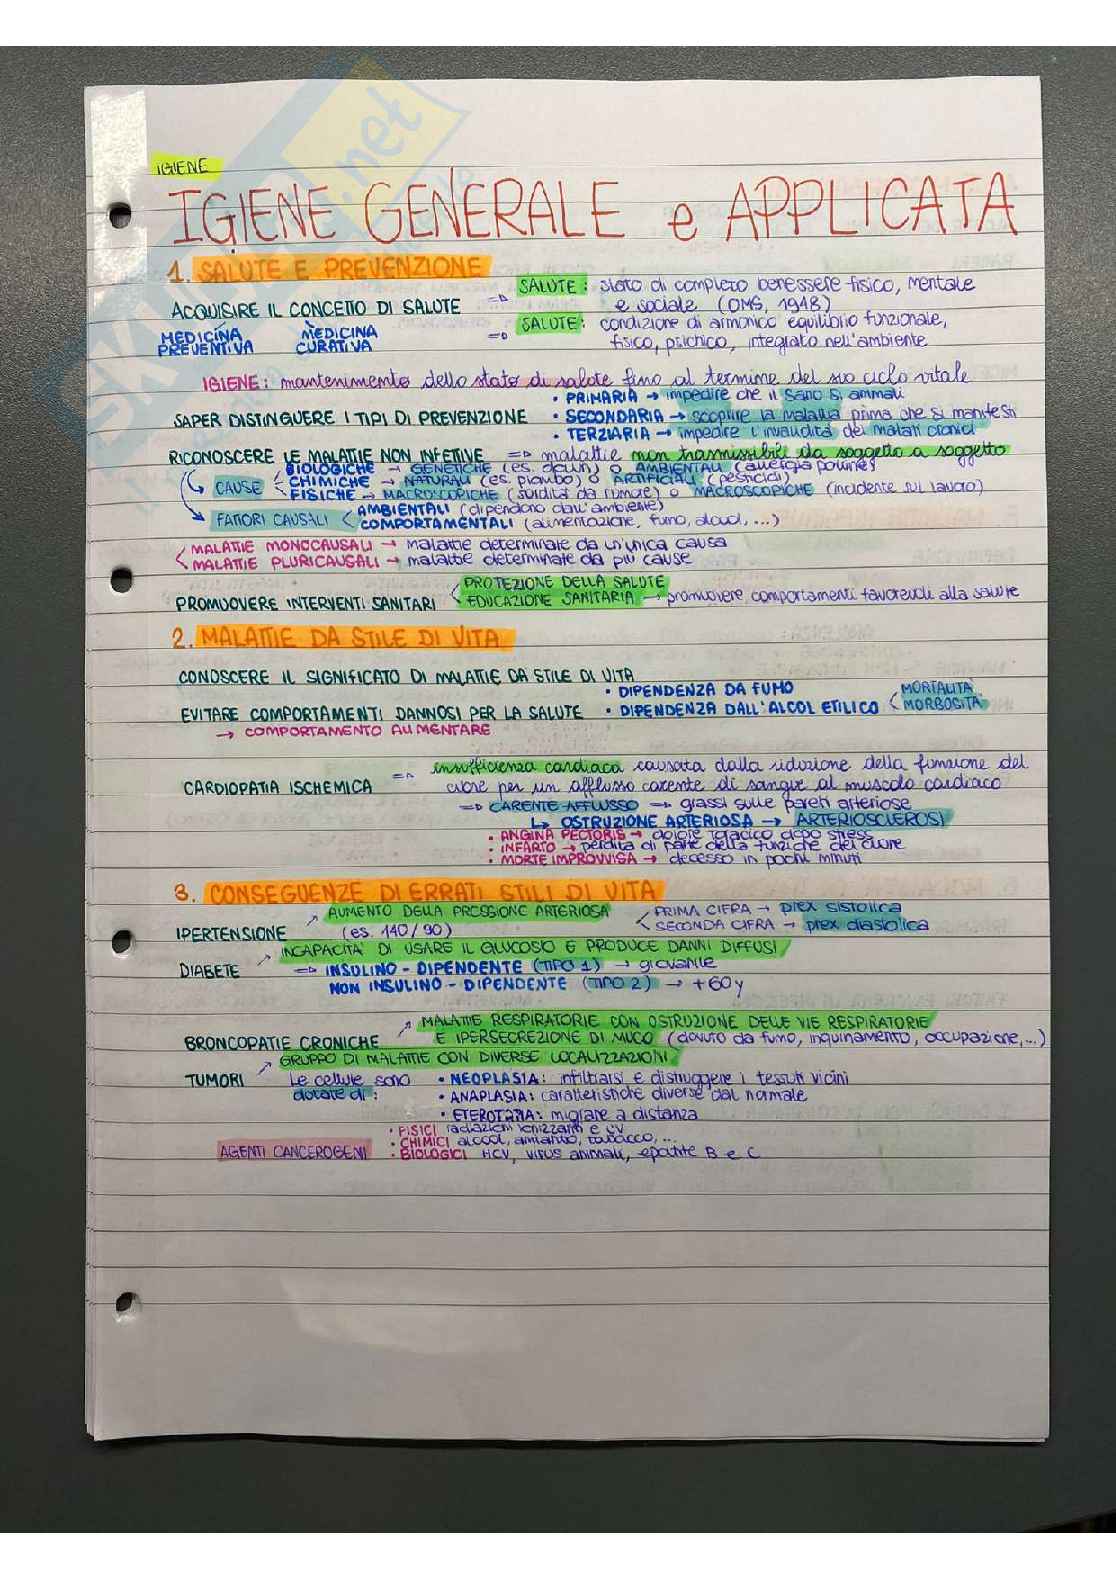 IGIENE
IGIENE GENERALE e APPLICATA
1. SALUTE E PREVENZIONE
ACQUISIRE IL CONCETTO DI SALUTE ⇨ SALUTE: stato di completo benessere fisico, mentale
e sociale (OMS, 1948)
MEDICINA PREVENTIVA MEDICINA CURATIVA ⇨ SALUTE: condizione di armonico equilibrio funzionale,
fisico, psichico, integrato nell'ambiente
IGIENE: mantenimento dello stato di salute fino al termine del suo ciclo vitale
• PRIMARIA → impedire che il sano si ammali
SAPER DISTINGUERE I TIPI DI PREVENZIONE • SECONDARIA → scoprire la malattia prima che si manifesti
• TERZIARIA → impedire l'invalidità dei malati cronici
RICONOSCERE LE MALATTIE NON INFETTIVE ⇨ malattie non trasmissibili da soggetto a soggetto
CAUSE BIOLOGICHE → GENETICHE (es. down) o AMBIENTALI (allergia polline)
CHIMICHE → NATURALI (es. piombo) o ARTIFICIALI (pesticidi)
FISICHE → MACROSCOPICHE (sordità da rumore) o MACROSCOPICHE (incidente sul lavoro)
FATTORI CAUSALI < AMBIENTALI (dipendono dall'ambiente)
COMPORTAMENTALI (alimentazione, fumo, alcool, ...)
MALATTIE MONOCAUSALI → malattie determinate da un'unica causa
MALATTIE PLURICAUSALI → malattie determinate da più cause
PROMUOVERE INTERVENTI SANITARI < PROTEZIONE DELLA SALUTE
EDUCAZIONE SANITARIA → promuovere comportamenti favorevoli alla salute
2. MALATTIE DA STILE DI VITA
CONOSCERE IL SIGNIFICATO DI MALATTIE DA STILE DI VITA
EVITARE COMPORTAMENTI DANNOSI PER LA SALUTE • DIPENDENZA DA FUMO
• DIPENDENZA DALL'ALCOL ETILICO < MORTALITÀ
MORBOSITÀ
→ COMPORTAMENTO ALIMENTARE
CARDIOPATIA ISCHEMICA ⇨ insufficienza cardiaca causata dalla riduzione della funzione del
cuore per un afflusso carente di sangue al muscolo cardiaco
⇨ CARENTE AFFLUSSO → grassi sulle pareti arteriose
↳ OSTRUZIONE ARTERIOSA → ARTERIOSCLEROSI
• ANGINA PECTORIS → dolore toracico dopo stress
• INFARTO → perdita di parte della funzione del cuore
• MORTE IMPROVVISA → decesso in pochi minuti
3. CONSEGUENZE DI ERRATI STILI DI VITA
IPERTENSIONE ↗ AUMENTO DELLA PRESSIONE ARTERIOSA < PRIMA CIFRA → prex sistolica
(es. 140/90) SECONDA CIFRA → prex diastolica
DIABETE ↗ INCAPACITÀ DI USARE IL GLUCOSIO E PRODUCE DANNI DIFFUSI
⇨ INSULINO-DIPENDENTE (TIPO 1) → giovanile
NON INSULINO-DIPENDENTE (TIPO 2) → +60y
BRONCOPATIE CRONICHE ↗ MALATTIE RESPIRATORIE CON OSTRUZIONE DELLE VIE RESPIRATORIE
E IPERSECREZIONE DI MUCO (dovuto da fumo, inquinamento, occupazione,...)
TUMORI ↗ GRUPPO DI MALATTIE CON DIVERSE LOCALIZZAZIONI
Le cellule sono dotate di: • NEOPLASIA: infiltrarsi e distruggere i tessuti vicini
• ANAPLASIA: caratteristiche diverse dal normale
• ETEROTOPIA: migrare a distanza
AGENTI CANCEROGENI • FISICI radiazioni ionizzanti e UV
• CHIMICI alcool, amianto, tabacco, ...
• BIOLOGICI HCV, virus animali, epatite B e C